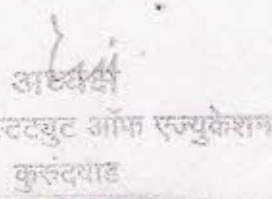 अध्यक्ष
स्टट्युट ऑफ एज्युकेशन
कुरुंदवाड